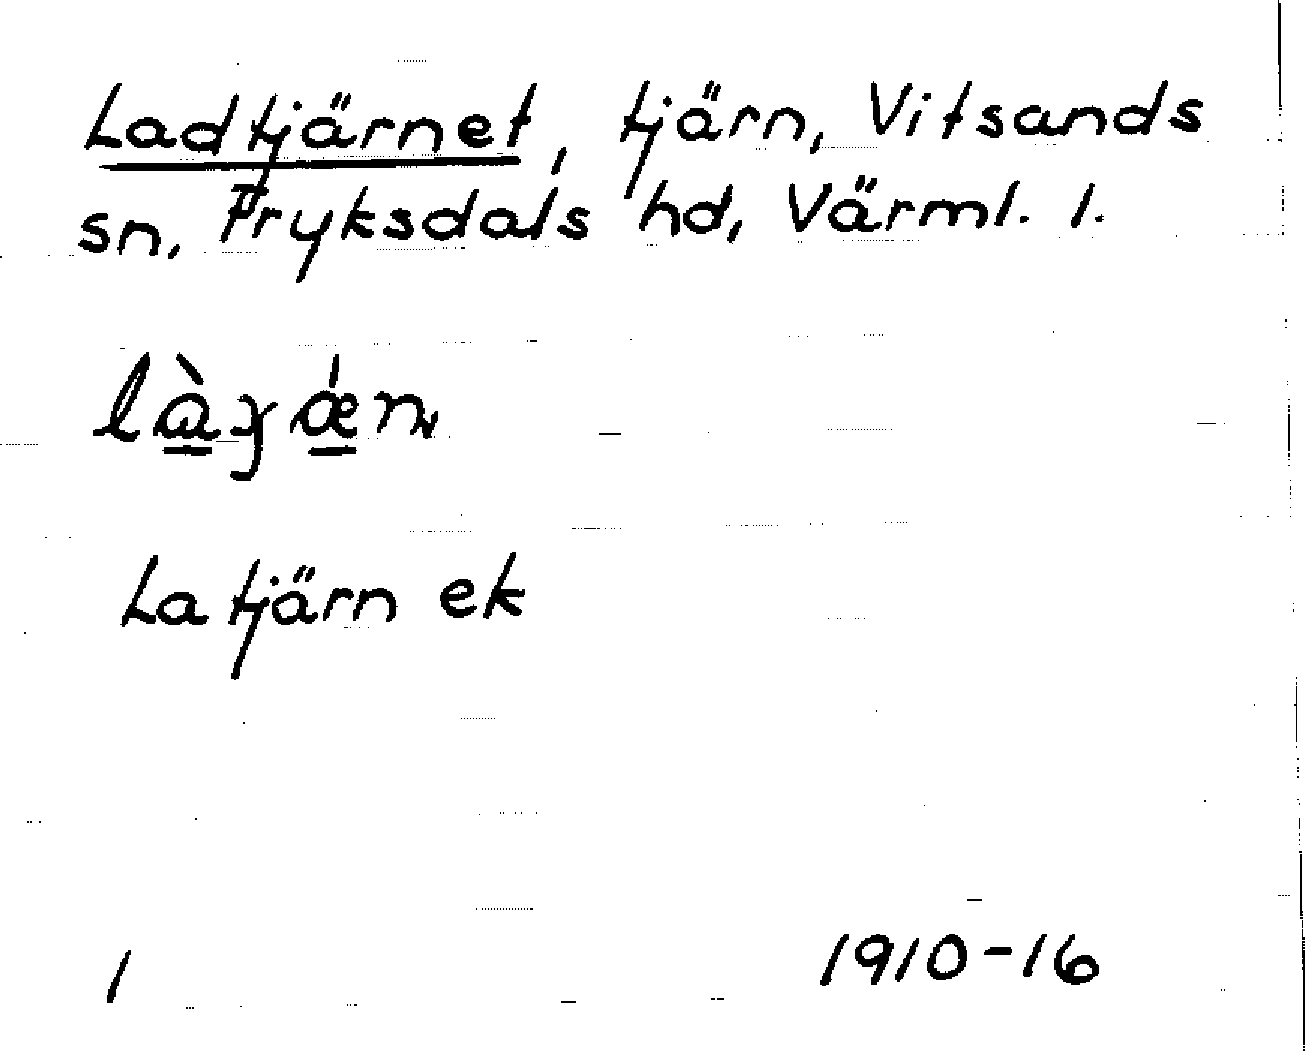 Ladtjärnet, tjärn, Vitsands
sn, Fryksdals hd, Värml. l.
Latjärn ek
1
1910-16